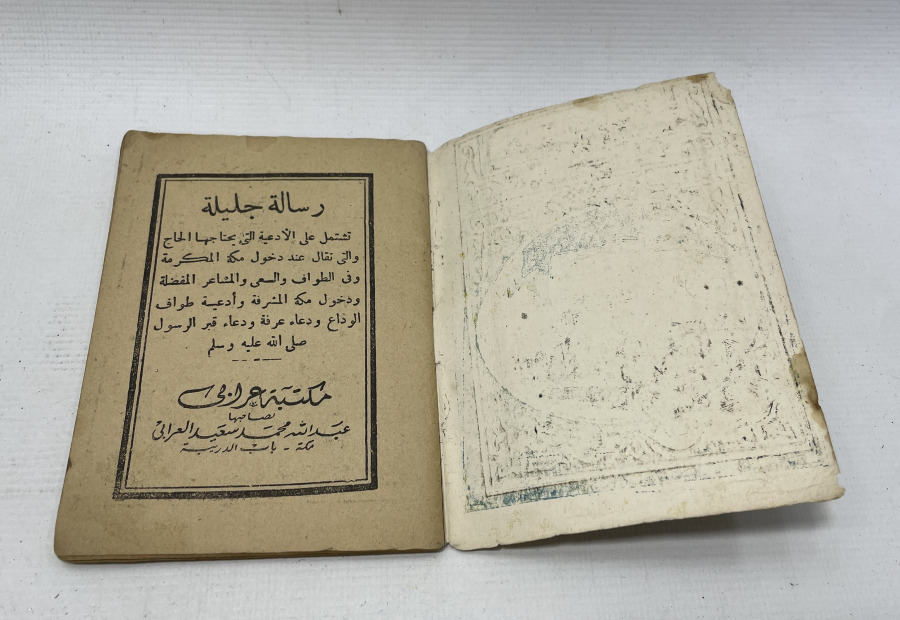 رسالة جليلة
تشتمل على الأدعية التى يحتاجها الحاج
والتى تقال عند دخول مكة المكرمة
وفى الطواف والسعى والمشاعر المفضلة
ودخول مكة المشرفة وأدعية طواف
الوداع ودعاء عرفة ودعاء قبر الرسول
صلى الله عليه وسلم
مكتبة عرابى
لصاحبها
عبدالله محمد سعيد العرابى
مكة - باب الدريبة